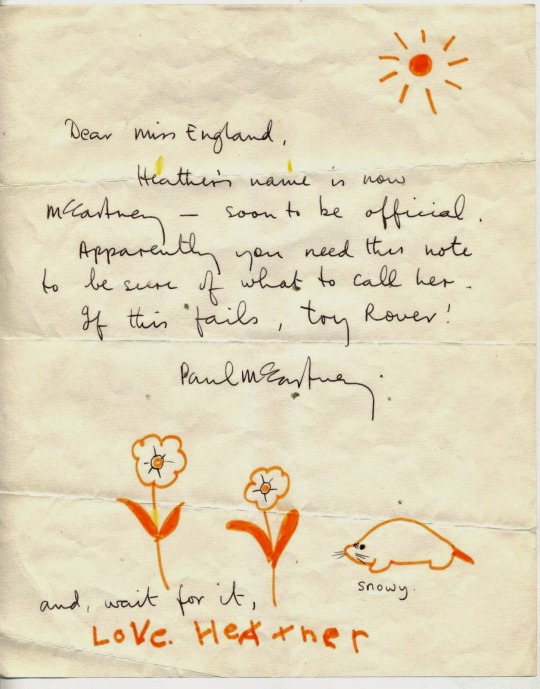 Dear Miss England,
Heather's name is now
McCartney — soon to be official.
Apparently you need this note
to be sure of what to call her.
If this fails, try Rover!
Paul McCartney.
snowy.
and, wait for it,
LoVe. HeatHer